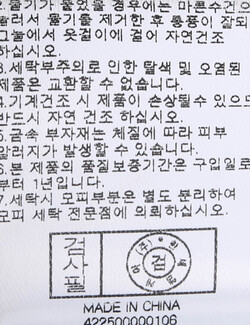 2.물기가 묻었을 경우에는 마른수건으
러서 물기를 제거한 후 통풍이 잘되
그늘에서 옷걸이에 걸어 자연건조
하십시오.
3.세탁부주의로 인한 탈색 및 오염된
제품은 교환할 수 없습니다.
4.기계건조 시 제품이 손상될수 있으
반드시 자연 건조 하십시오.
5.금속 부자재는 체질에 따라 피부
알러지가 발생할 수 있습니다.
6.본 제품의 품질보증기간은 구입일로
부터 1년입니다.
7.세탁시 모피부분은 별도 분리하여
모피 세탁 전문점에 의뢰하십시오.
검사필
검
MADE IN CHINA
422500000106